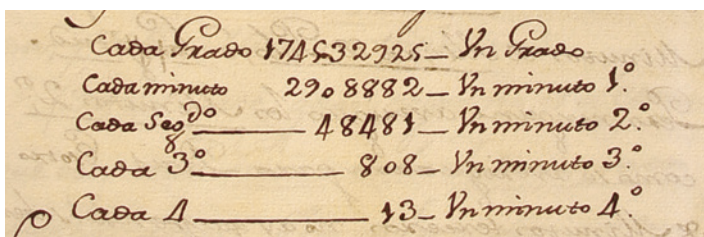 Cada Grado 174532925_ Vn Grado
Cada minuto 2908882_ Vn minuto 1.º
Cada Seg.do ______ 48481_ Vn minuto 2.º
Cada 3.º ______ 808_ Vn minuto 3.º
Cada 4 ______ 13_ Vn minuto 4.º